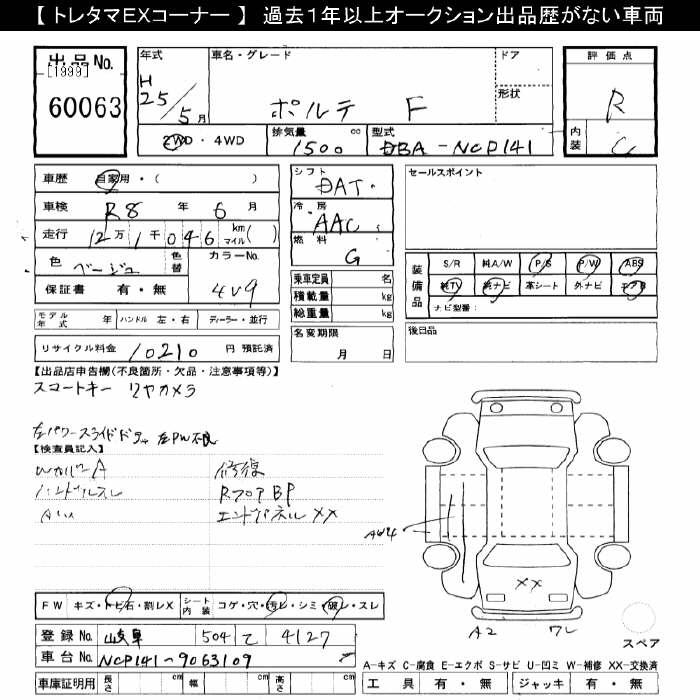 【トレタマEXコーナー】 過去1年以上オークション出品歴がない車両
出品No.
[1999]
60063
年式
H 25/5月
車名・グレード
ポルテ F
ドア
形状
評価点
R
内装 C
2WD・4WD
排気量 1500 cc
型式 DBA-NCP141
車歴 自家用・( )
車検 R8 年 6 月
走行 12万1千046 km マイル( )
色 ベージュ 色替 カラーNo. 4V9
保証書 有・無
シフト DAT
冷房 AAC
燃料 G
乗車定員 名
積載量 kg
総重量 kg
名変期限
月 日
セールスポイント
装備品
S/R 純A/W P/S P/W ABS
純TV 純ナビ 革シート 外ナビ エアB
ナビ型番:
後日品
モデル年式 年 ハンドル 左・右 ディーラー・並行
リサイクル料金 10210 円 預託済
【出品店申告欄(不良箇所・欠品・注意事項等)】
スマートキー リヤカメラ
左パワースライドドア 左PW不良
【検査員記入】
WカバーA 修復
ハンドルスレ RフロアBP
エンドパネルXX
AW4
XX
A2
スペア
FW キズ・トビ石・割レX シート内装 コゲ・穴・汚レ・シミ・破レ・スレ
登録No. 岐阜 504 て 4127
車台No. NCP141-9063109
車庫証明用 長さ cm 幅 cm 高さ cm
A-キズ C-腐食 E-エクボ S-サビ U-凹ミ W-補修 XX-交換済
工具 有・無 ジャッキ 有・無